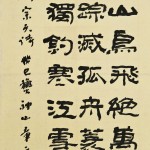 山鳥飛絕萬
踪滅孤舟蓑
獨釣寒江雪
宗元诗